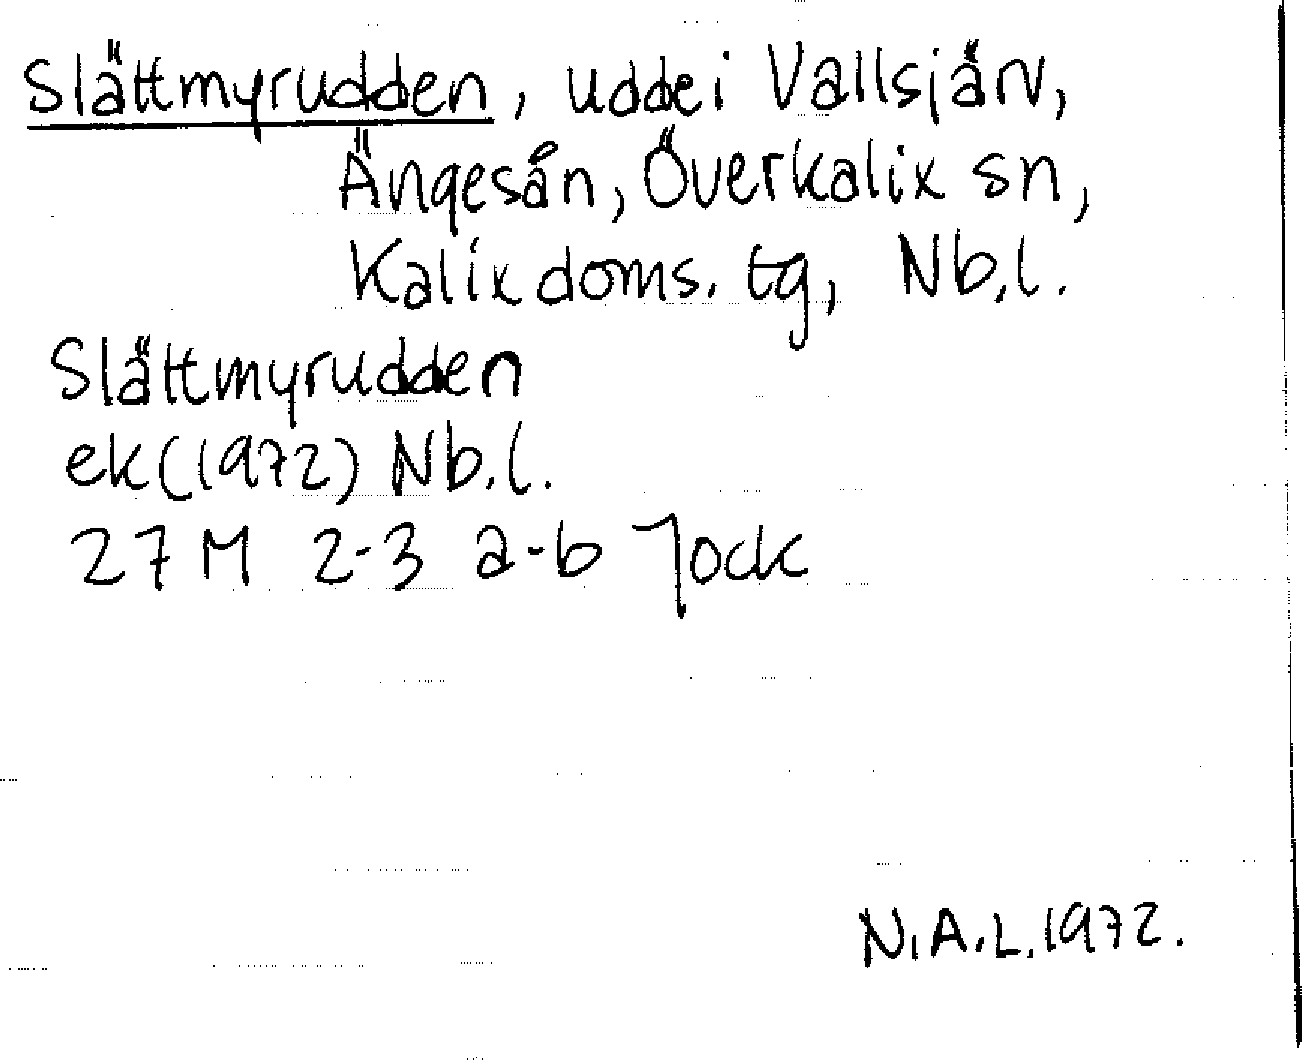 Slättmyrudden, udde i Vallsjärv,
Ängesån, Överkalix sn,
Kalix doms. tg, Nb.l.
Slättmyrudden
ek (1972) Nb.l.
27 M 2-3 a-b Jock
N.A.L. 1972.